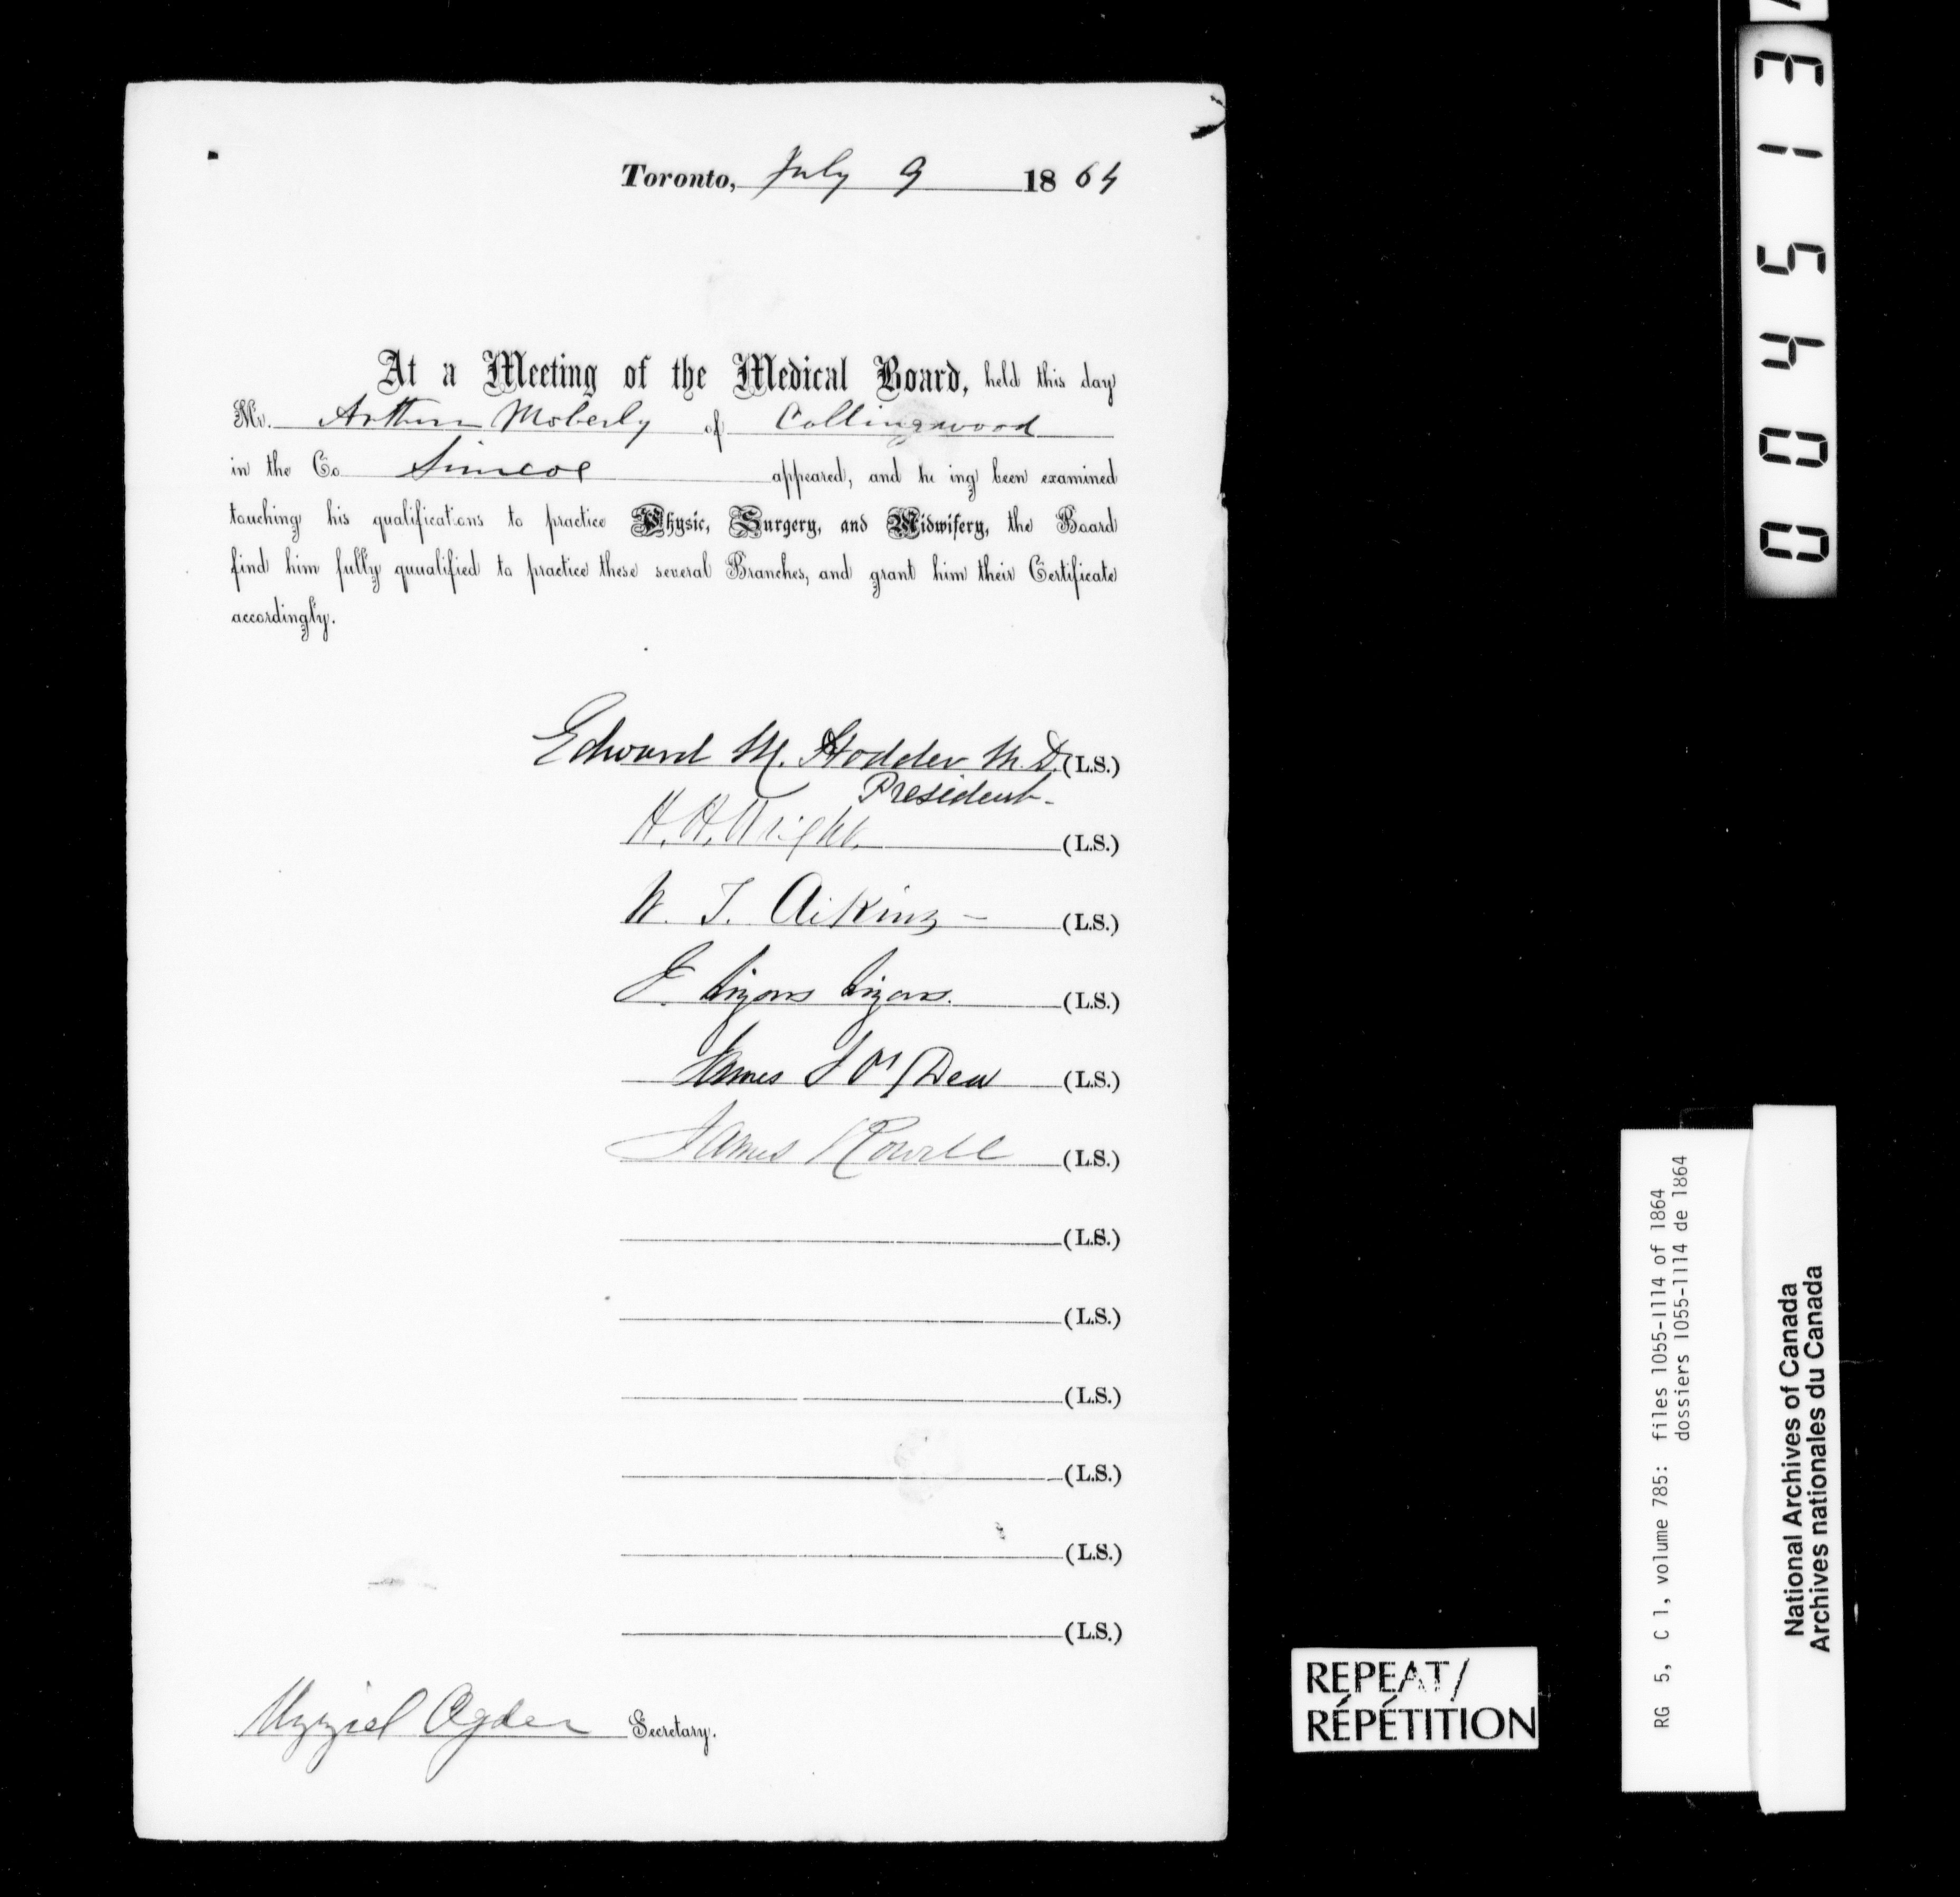 Toronto, July 9 1864
At a Meeting of the Medical Board, held this day
Mr. Arthur Moberly of Collingwood
in the Co Simcoe appeared, and h ing been examined
touching his qualifications to practice Physic, Surgery, and Midwifery, the Board
find him fully quualified to practice these several Branches, and grant him their Certificate
accordingly.
Edward M. Hodder M.D. (L.S.)
President
H. H. Wright. (L.S.)
W. T. Aikins (L.S.)
J. Lizars Lizars. (L.S.)
James (L.S.)
James Rowell (L.S.)
(L.S.)
(L.S.)
(L.S.)
(L.S.)
(L.S.)
(L.S.)
Uzziel Ogden Secretary.
REPEAT/
RÉPÉTITION
004513
RG 5, C 1, volume 785: files 1055-1114 of 1864
dossiers 1055-1114 de 1864
National Archives of Canada
Archives nationales du Canada